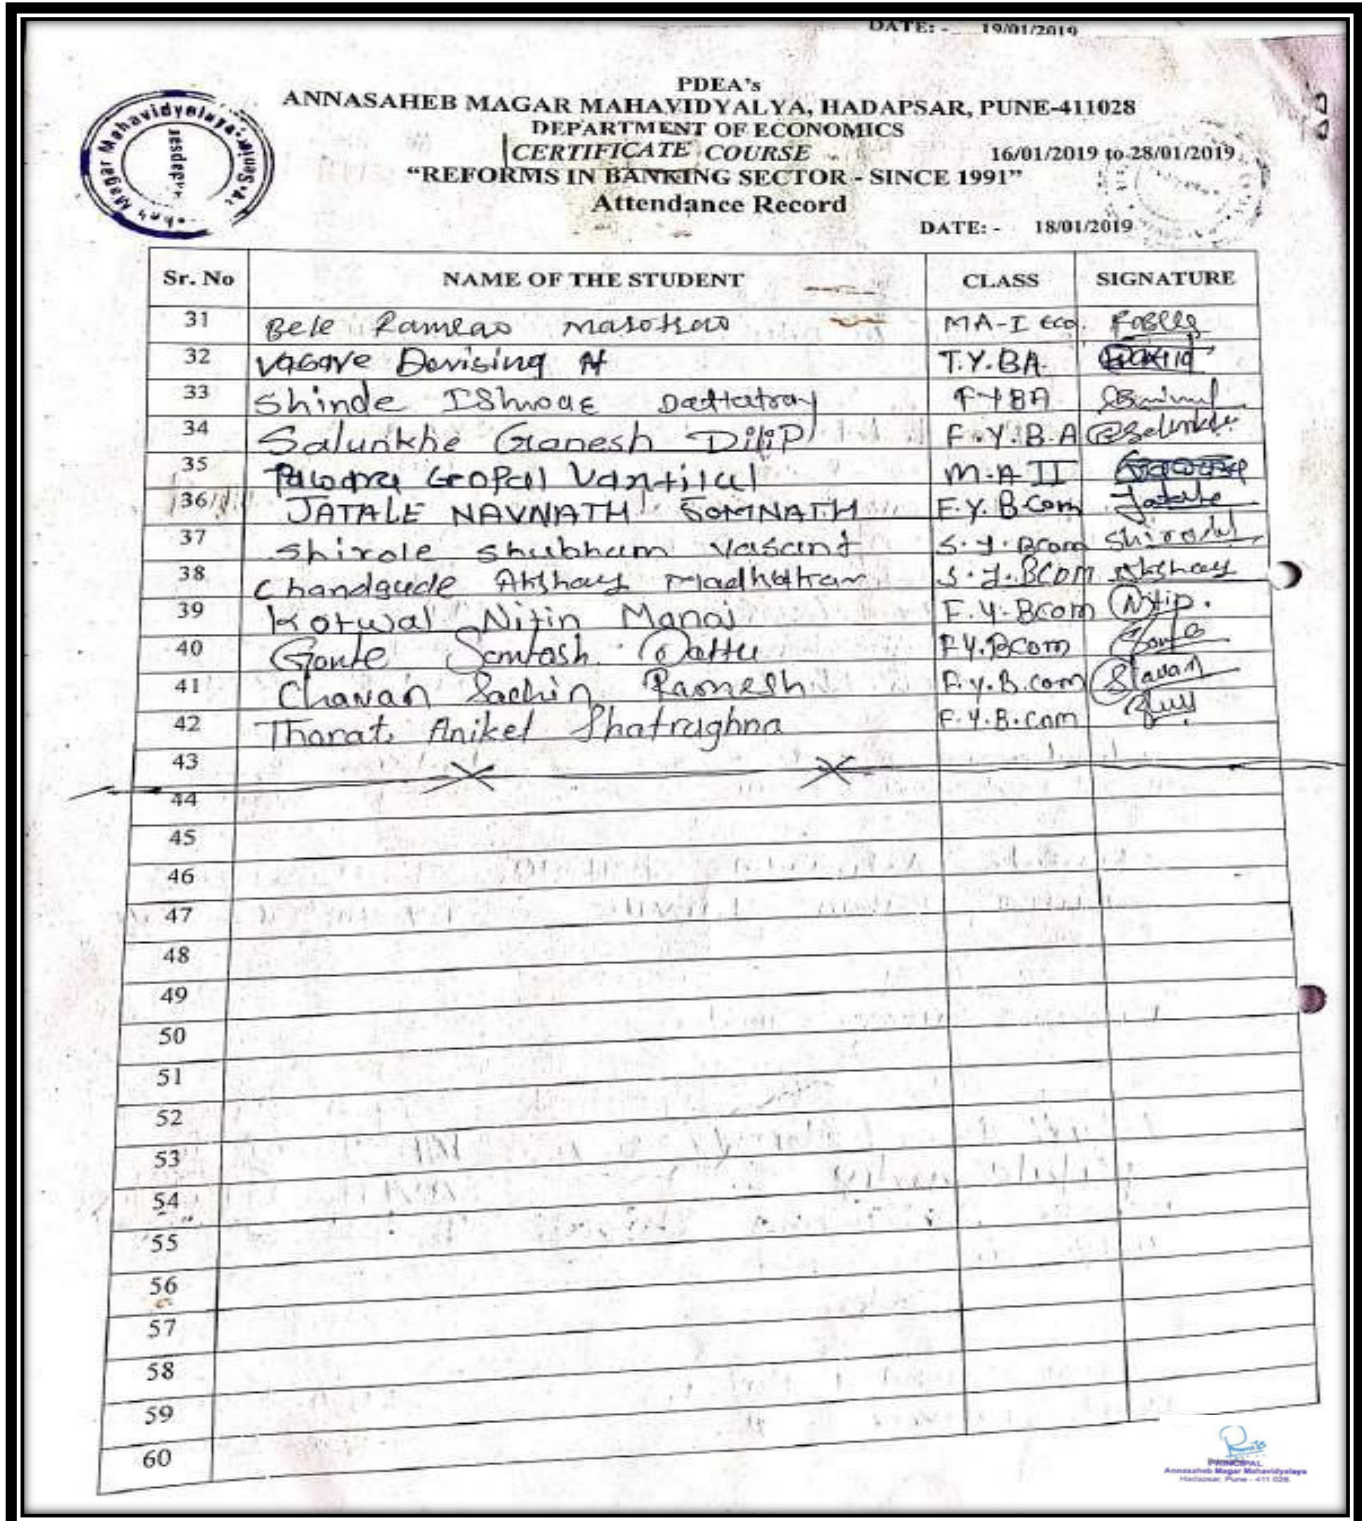 DATE: - 19/01/2019
PDEA's
ANNASAHEB MAGAR MAHAVIDYALYA, HADAPSAR, PUNE-411028
DEPARTMENT OF ECONOMICS
CERTIFICATE COURSE 16/01/2019 to 28/01/2019
"REFORMS IN BANKING SECTOR - SINCE 1991"
Attendance Record
DATE: - 18/01/2019
Sr. No NAME OF THE STUDENT CLASS SIGNATURE
31 Bele Ramrao Marotrao MA-I eco.
32 Vasave Devising T.Y.BA
33 Shinde Dattatray F Y BA
34 Salunkhe Ganesh Dilip F.Y.B.A Salunkhe
35 Gopal M.A II
36 JATALE NAVNATH SOMNATH F.Y.B.Com Jatale
37 Shirole Shubham Vasant S.Y.Bcom Shirole
38 Chandgude Akshay S.Y.BCOM Akshay
39 Kotwal Nitin Manoj F.Y.Bcom Nitin.
40 Santosh Dattu F.Y.Bcom
41 Chavan Sachin Ramesh F.Y.B.com
42 Thorat. Aniket Shatrughna F.Y.B.Com
43
44
45
46
47
48
49
50
51
52
53
54
55
56
57
58
59
60
PRINCIPAL
Annasaheb Magar Mahavidyalaya
Hadapsar, Pune - 411 028.